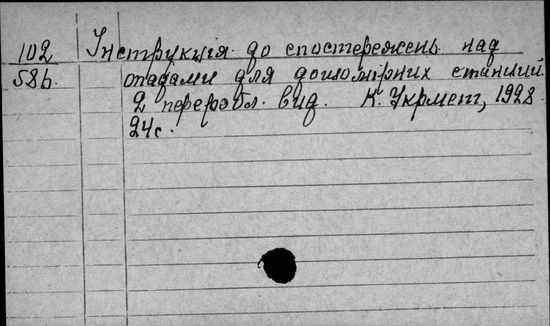 102 Інструкція до спостережень над
58b. опадами для дощомірних станций.
2 переробл. вид. К. Укрмет, 1928
24с.